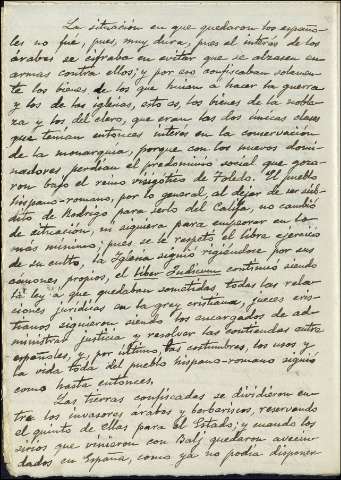 La situación en que quedaron los españo-
les no fué, pues, muy dura, pues el interés de los
árabes se cifraba en evitar que se alzasen en
armas contra ellos; y por eso confiscaban solamen-
te los bienes de los que huían a hacer la guerra
y los de las iglesias, esto es, los bienes de la noble-
za y los del clero, que eran las dos únicas clases
que tenían entonces interés en la conservación
de la monarquía, porque con los nuevos domi-
nadores perdían el predominio social que goza-
ron bajo el reino visigótico de Toledo. El pueblo
hispano-romano, por lo general, al dejar de ser súb-
dito de Rodrigo para serlo del Califa, no cambió
de situación, ni siquiera para empeorar en lo
más mínimo; pues se le respetó el libre ejercicio
de su culto, la Iglesia siguió rigiéndose por sus
cánones propios, el liber Iudicum continuó siendo
la ley a que quedaban sometidas todas las rela-
ciones jurídicas en la grey cristiana, jueces cris-
tianos siguieron siendo los encargados de ad-
ministrar justicia y resolver las contiendas entre
españoles, y, por último, las costumbres, los usos y
la vida toda del pueblo hispano-romano siguió
como hasta entonces.
Las tierras confiscadas se dividieron en-
tre los invasores árabes y berberiscos, reservando
el quinto de ellas para el Estado; y cuando los
sirios que vinieron con Balj quedaron avecin-
dados en España, como ya no podía disponer